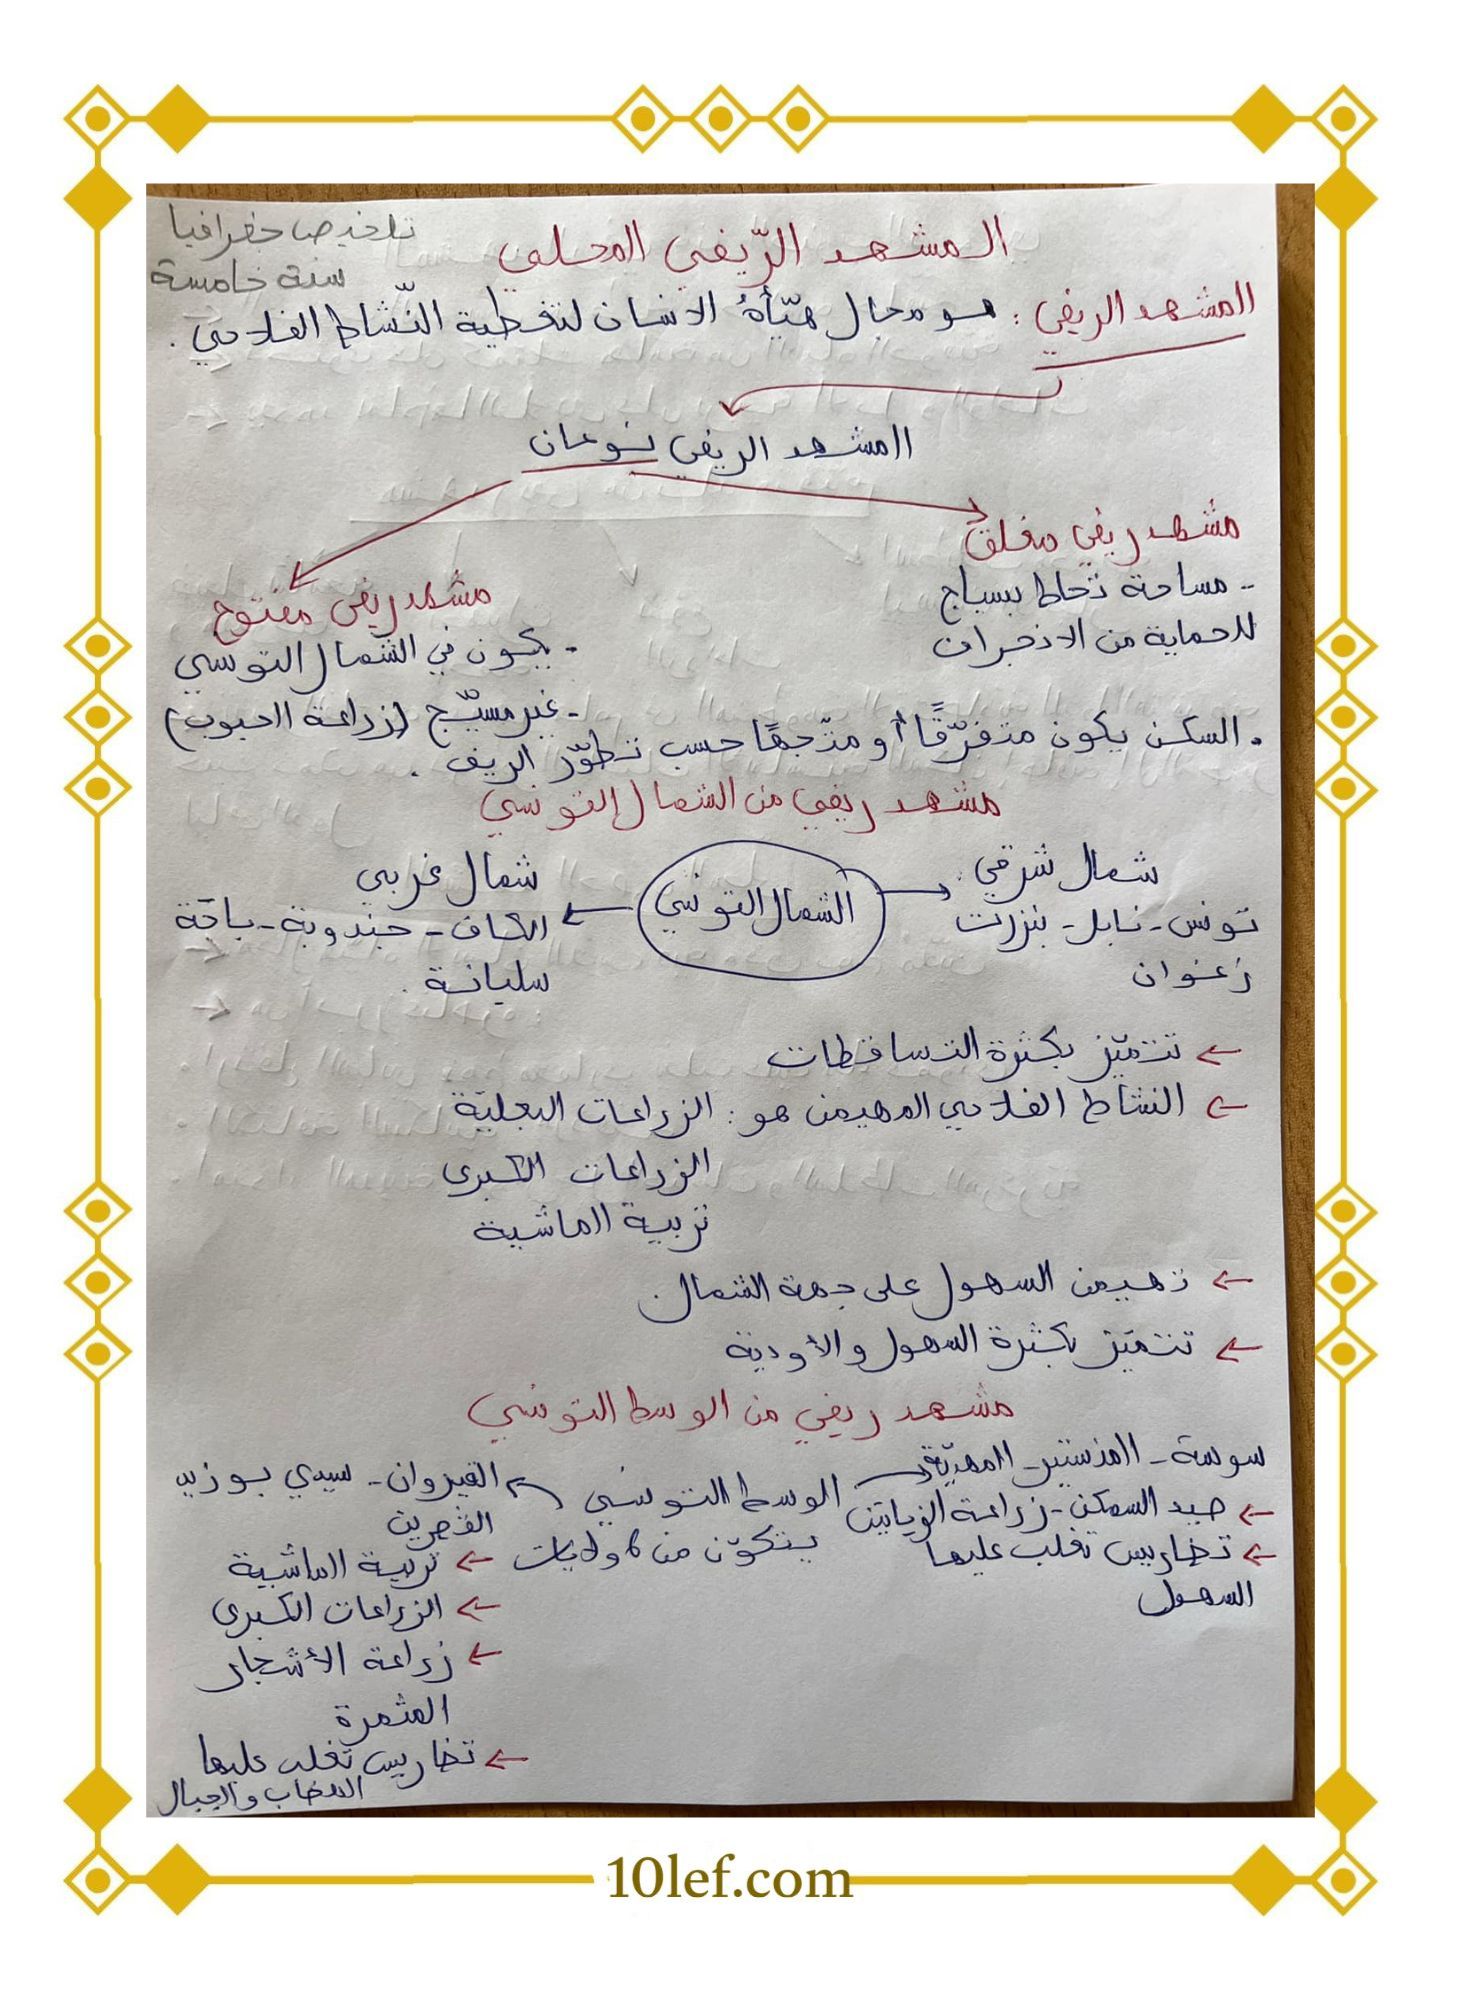 تلخيص جغرافيا
سنة خامسة
المشهد الرّيفي المحلي
المشهد الريفي : هو مجال هيّأهُ الانسان لتغطية النّشاط الفلاحي .
المشهد الريفي نوعان
مشهد ريفي مغلق
- مساحة تحاط بسياج
للحماية من الانجراف
مشهد ريفي مفتوح
- يكون في الشمال التونسي
- غير مسيّج (زراعة الحبوب)
. السكن يكون متفرّقًا أو متجمّعًا حسب تطوّر الريف .
مشهد ريفي من الشمال التونسي
الشمال التونسي
شمال شرقي :
تونس - نابل - بنزرت
زغوان
شمال غربي
الكاف - جندوبة - باجة
سليانة .
← تتميّز بكثرة التساقطات
← النشاط الفلاحي المهيمن هو : الزراعات البعليّة
الزراعات الكبرى
تربية الماشية
← تهيمن السهول على جهة الشمال .
← تتميّز بكثرة السهول والأودية
مشهد ريفي من الوسط التونسي
الوسط التونسي
يتكوّن من 6 ولايات
سوسة - المنستير - المهديّة
← صيد السمك - زراعة الزياتين
← تضاريس تغلب عليها
السهول
القيروان - سيدي بوزيد
القصرين
← تربية الماشية
← الزراعات الكبرى
← زراعة الأشجار
المثمرة
← تضاريس تغلب عليها
الهضاب والجبال
10lef.com